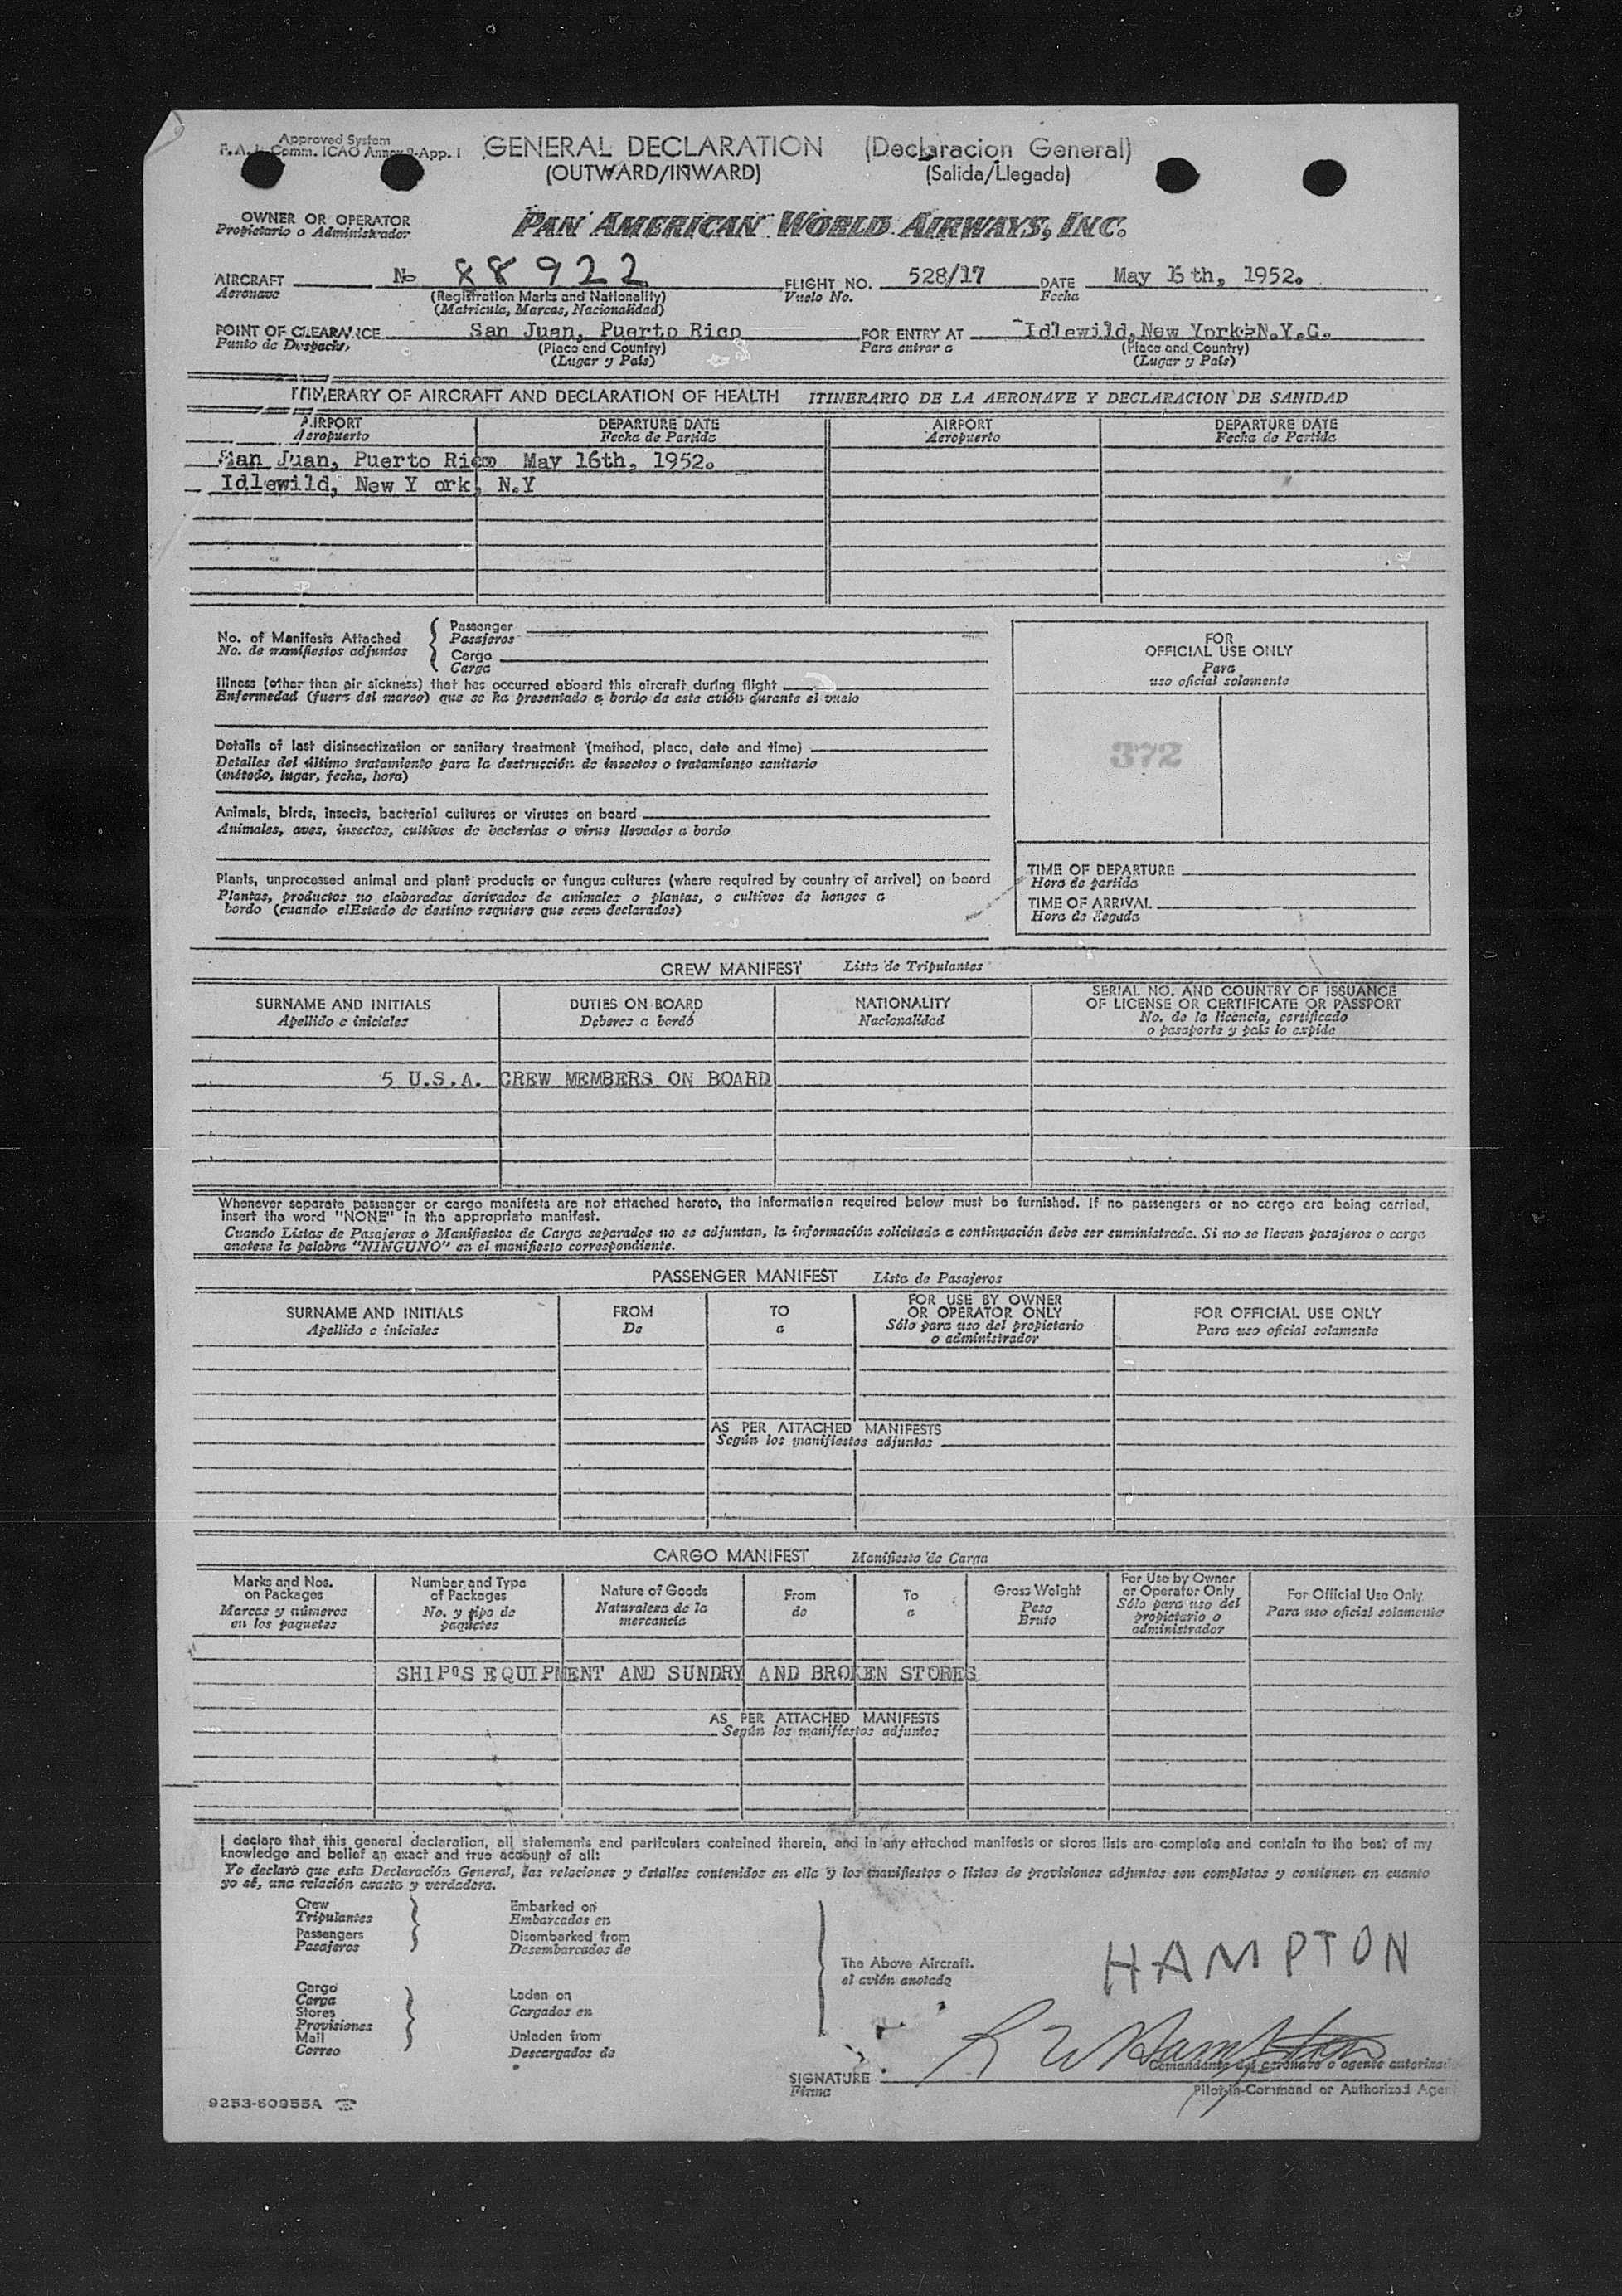 Approved System
GENERAL DECLARATION (Declaracion General)
F.A.L. Comm. ICAO Annex 9-App. I
(OUTWARD/INWARD) (Salida/Llegada)
OWNER OR OPERATOR
Propietario o Administrador
PAN AMERICAN WORLD AIRWAYS, INC.
AIRCRAFT N 88922 FLIGHT NO. 528/17 DATE May 16th, 1952.
Aeronave (Registration Marks and Nationality) Vuelo No. Fecha
(Matricula, Marcas, Nacionalidad)
POINT OF CLEARANCE San Juan, Puerto Rico FOR ENTRY AT Idlewild, New York-N.Y.C.
Punto de Despacho, (Place and Country) Para entrar a (Place and Country)
(Lugar y País) (Lugar y País)
ITINERARY OF AIRCRAFT AND DECLARATION OF HEALTH ITINERARIO DE LA AERONAVE Y DECLARACION DE SANIDAD
AIRPORT DEPARTURE DATE AIRPORT DEPARTURE DATE
Aeropuerto Fecha de Partida Aeropuerto Fecha de Partida
San Juan, Puerto Rico May 16th, 1952.
Idlewild, New Y ork, N.Y
No. of Manifests Attached
No. de manifiestos adjuntos
Passenger
Pasajeros
Cargo
Carga
Illness (other than air sickness) that has occurred aboard this aircraft during flight
Enfermedad (fuera del mareo) que se ha presentado a bordo de este avión durante el vuelo
Details of last disinsectization or sanitary treatment (method, place, date and time)
Detalles del último tratamiento para la destrucción de insectos o tratamiento sanitario
(método, lugar, fecha, hora)
Animals, birds, insects, bacterial cultures or viruses on board
Animales, aves, insectos, cultivos de bacterias o virus llevados a bordo
Plants, unprocessed animal and plant products or fungus cultures (where required by country of arrival) on board
Plantas, productos no elaborados derivados de animales o plantas, o cultivos de hongos a
bordo (cuando elEstado de destino requiere que sean declarados)
FOR
OFFICIAL USE ONLY
Para
uso oficial solamente
372
TIME OF DEPARTURE
Hora de partida
TIME OF ARRIVAL
Hora de llegada
CREW MANIFEST Lista de Tripulantes
SURNAME AND INITIALS DUTIES ON BOARD NATIONALITY SERIAL NO. AND COUNTRY OF ISSUANCE
Apellido e iniciales Deberes a bordo Nacionalidad OF LICENSE OR CERTIFICATE OR PASSPORT
No. de la licencia, certificado
o pasaporte y país lo expide
5 U.S.A. CREW MEMBERS ON BOARD
Whenever separate passenger or cargo manifests are not attached hereto, the information required below must be furnished. If no passengers or no cargo are being carried,
insert the word "NONE" in the appropriate manifest.
Cuando Listas de Pasajeros o Manifiestos de Carga separados no se adjuntan, la información solicitada a continuación debe ser suministrada. Si no se lleven pasajeros o carga
anotese la palabra "NINGUNO" en el manifiesto correspondiente.
PASSENGER MANIFEST Lista de Pasajeros
SURNAME AND INITIALS FROM TO FOR USE BY OWNER FOR OFFICIAL USE ONLY
Apellido e iniciales De a OR OPERATOR ONLY Para uso oficial solamente
Sólo para uso del propietario
o administrador
AS PER ATTACHED MANIFESTS
Según los manifiestos adjuntos
CARGO MANIFEST Manifiesto de Carga
Marks and Nos.
on Packages
Marcas y números
en los paquetes
Number and Type
of Packages
No. y tipo de
paquetes
Nature of Goods
Naturaleza de la
mercancia
From
de
To
a
Gross Weight
Peso
Bruto
For Use by Owner
or Operator Only
Sólo para uso del
propietario o
administrador
For Official Use Only
Para uso oficial solamente
SHIP'S EQUIPMENT AND SUNDRY AND BROKEN STORES
AS PER ATTACHED MANIFESTS
Según los manifiestos adjuntos
I declare that this general declaration, all statements and particulars contained therein, and in any attached manifests or stores lists are complete and contain to the best of my
knowledge and belief an exact and true account of all:
Yo declaró que esta Declaración General, las relaciones y detalles contenidos en ella y los manifiestos o listas de provisiones adjuntos son completos y contienen en cuanto
yo sé, una relación exacta y verdadera.
Crew
Tripulantes
Passengers
Pasajeros
Embarked on
Embarcados en
Disembarked from
Desembarcados de
Cargo
Carga
Stores
Provisiones
Mail
Correo
Laden on
Cargados en
Unladen from
Descargados de
The Above Aircraft.
el avión anotado
HAMPTON
R W Hampton
SIGNATURE
Firma
Comandante del aeronave o agente autorizado
Pilot-in-Command or Authorized Agent
9253-60955A